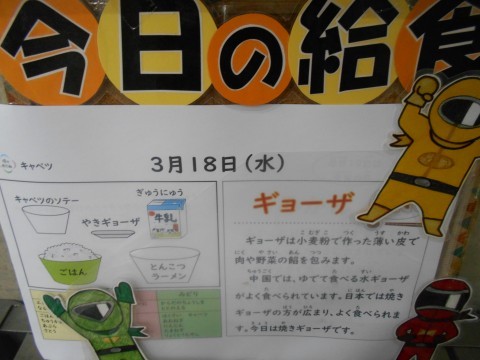 今日の給食
キャベツ
3月18日(水)
キャベツのソテー
ぎゅうにゅう
牛乳
やきギョーザ
ごはん
とんこつ
ラーメン
ギョーザ
ギョーザは小麦粉で作った薄い皮で
肉や野菜の餡を包みます。
中国では、ゆでて食べる水ギョーザ
がよく食べられています。日本では焼き
ギョーザの方が広まり、よく食べられま
す。今日は焼きギョーザです。